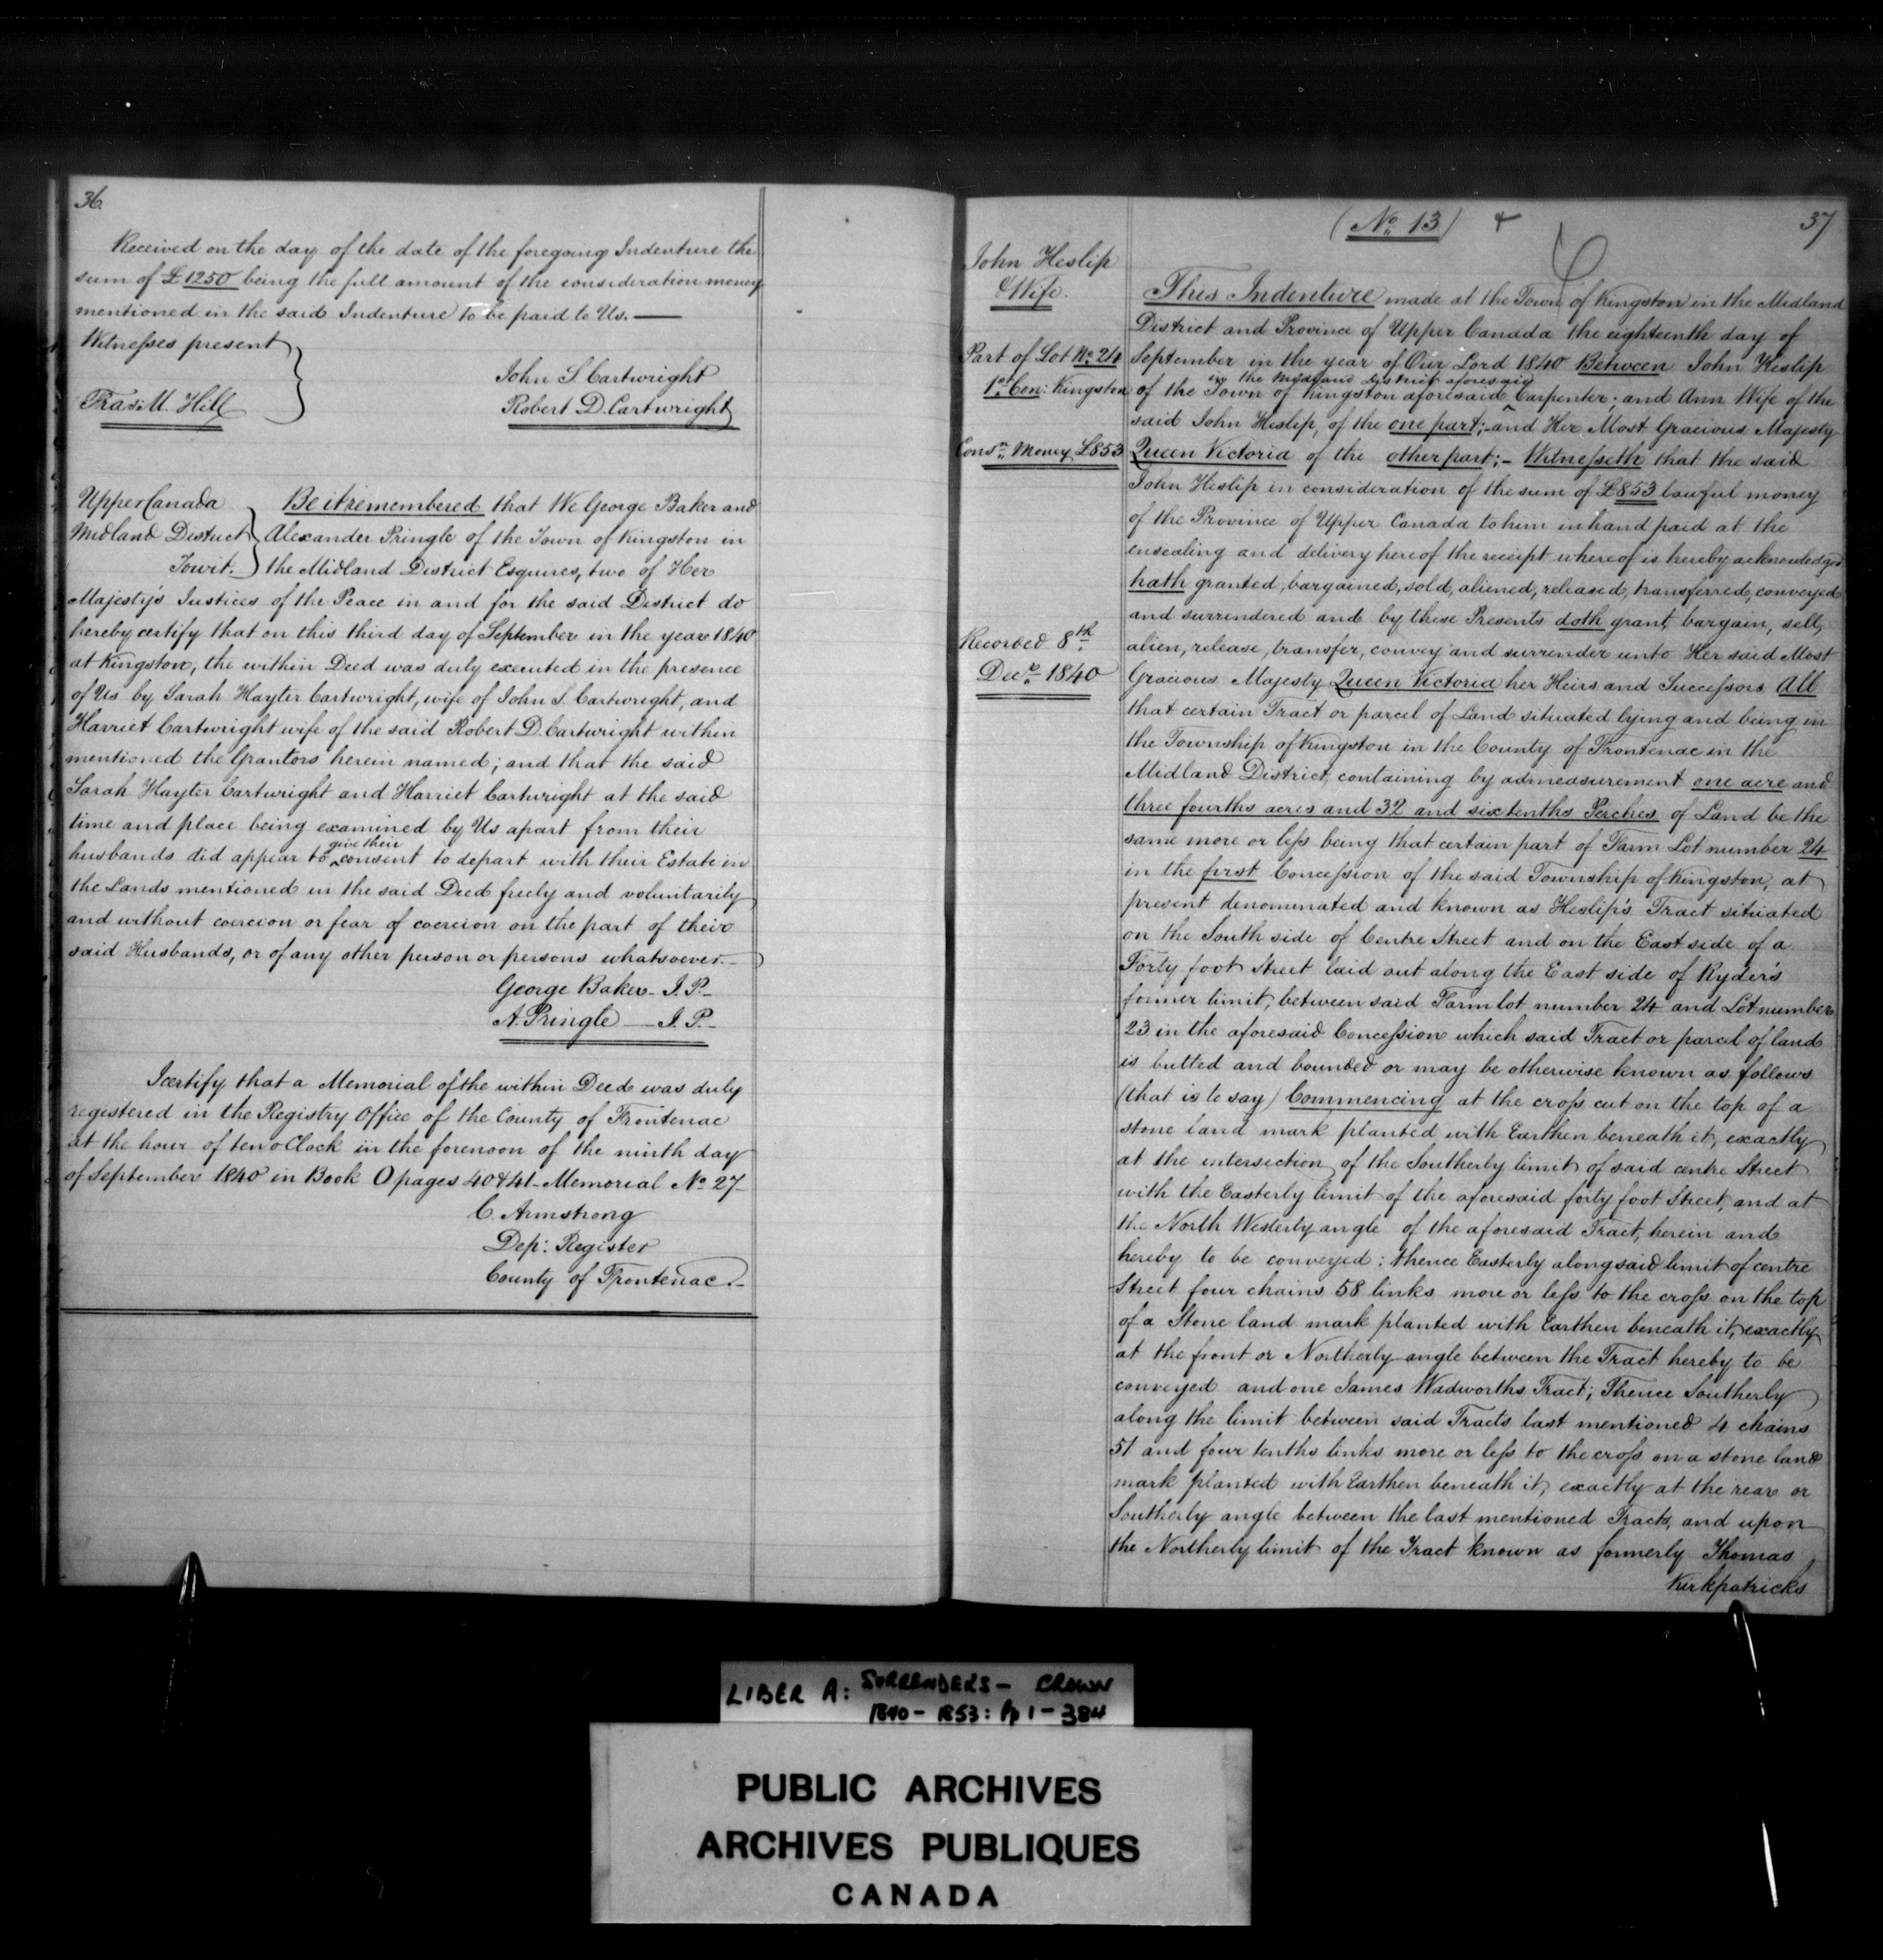 36.
Received on the day of the date of the foregoing Indenture the
sum of £1250 being the full amount of the consideration money
mentioned in the said Indenture to be paid to Us.—
Witnesses present
John S. Cartwright
Fras: M. Hill
Robert D. Cartwright
Upper Canada
Midland District
Towit.
Be it remembered that We George Baker and
Alexander Pringle of the Town of Kingston in
the Midland District Esquires, two of Her
Majesty's Justices of the Peace in and for the said District do
hereby certify that on this third day of September in the year 1840
at Kingston, the within Deed was duly executed in the presence
of Us by Sarah Hayter Cartwright, wife of John S. Cartwright, and
Harriet Cartwright wife of the said Robert D. Cartwright within
mentioned the Grantors herein named; and that the said
Sarah Hayter Cartwright and Harriet Cartwright at the said
time and place being examined by Us apart from their
husbands did appear to give their consent to depart with their Estate in
the Lands mentioned in the said Deed freely and voluntarily
and without coercion or fear of coercion on the part of their
said Husbands, or of any other person or persons whatsoever.—
George Baker - J.P.-
A. Pringle — J.P.-
I certify that a Memorial of the within Deed was duly
registered in the Registry Office of the County of Frontenac
at the hour of ten o Clock in the forenoon of the ninth day
of September 1840 in Book O pages 40 & 41 - Memorial No. 27-
C. Armstrong
Dep: Register
County of Frontenac.-
37
(No. 13)
John Heslip
& Wife.
Part of Lot No. 24
1st Con: Kingston
Consn. Money £853
Recorded 8th
Decr. 1840
This Indenture made at the Town of Kingston in the Midland
District and Province of Upper Canada the eighteenth day of
September in the year of Our Lord 1840 Between John Heslip
of the Town of Kingston aforesaid in the Midland District aforesaid Carpenter; and Ann Wife of the
said John Heslip, of the one part; - and Her Most Gracious Majesty
Queen Victoria of the other part; - Witnesseth that the said
John Heslip in consideration of the sum of £853 lawful money
of the Province of Upper Canada to him in hand paid at the
ensealing and delivery hereof the receipt whereof is hereby acknowledged
hath granted, bargained, sold, aliened, released, transferred, conveyed
and surrendered and by these Presents doth grant, bargain, sell,
alien, release, transfer, convey and surrender unto Her said Most
Gracious Majesty Queen Victoria her Heirs and Successors All
that certain Tract or parcel of Land situated lying and being in
the Township of Kingston in the County of Frontenac in the
Midland District, containing by admeasurement one acre and
three fourths acres and 32 and six tenths Perches of Land be the
same more or less being that certain part of Farm Lot number 24
in the first Concession of the said Township of Kingston, at
present denominated and known as Heslip's Tract situated
on the South side of Centre Street and on the East side of a
Forty foot Street laid out along the East side of Ryder's
former limit, between said Farm lot number 24 and Lot number
23 in the aforesaid Concession which said Tract or parcel of land
is butted and bounded or may be otherwise known as follows
(that is to say) Commencing at the cross cut on the top of a
stone land mark planted with Earthen beneath it, exactly
at the intersection of the Southerly limit of said centre Street
with the Easterly limit of the aforesaid forty foot Street, and at
the North Westerly angle of the aforesaid Tract, herein and
hereby to be conveyed; thence Easterly along said limit of centre
Street four chains 58 links more or less to the cross on the top
of a Stone land mark planted with Earthen beneath it, exactly
at the front or Northerly angle between the Tract hereby to be
conveyed and one James Wadworths Tract; Thence Southerly
along the limit between said Tracts last mentioned 4 chains
51 and four tenths links more or less to the cross on a stone land
mark planted with Earthen beneath it, exactly at the rear or
Southerly angle between the last mentioned Tracts, and upon
the Northerly limit of the Tract known as formerly Thomas
Kirkpatricks
LIBER A: SURRENDERS - CROWN
1840 - 1853: Pp 1 - 384
PUBLIC ARCHIVES
ARCHIVES PUBLIQUES
CANADA